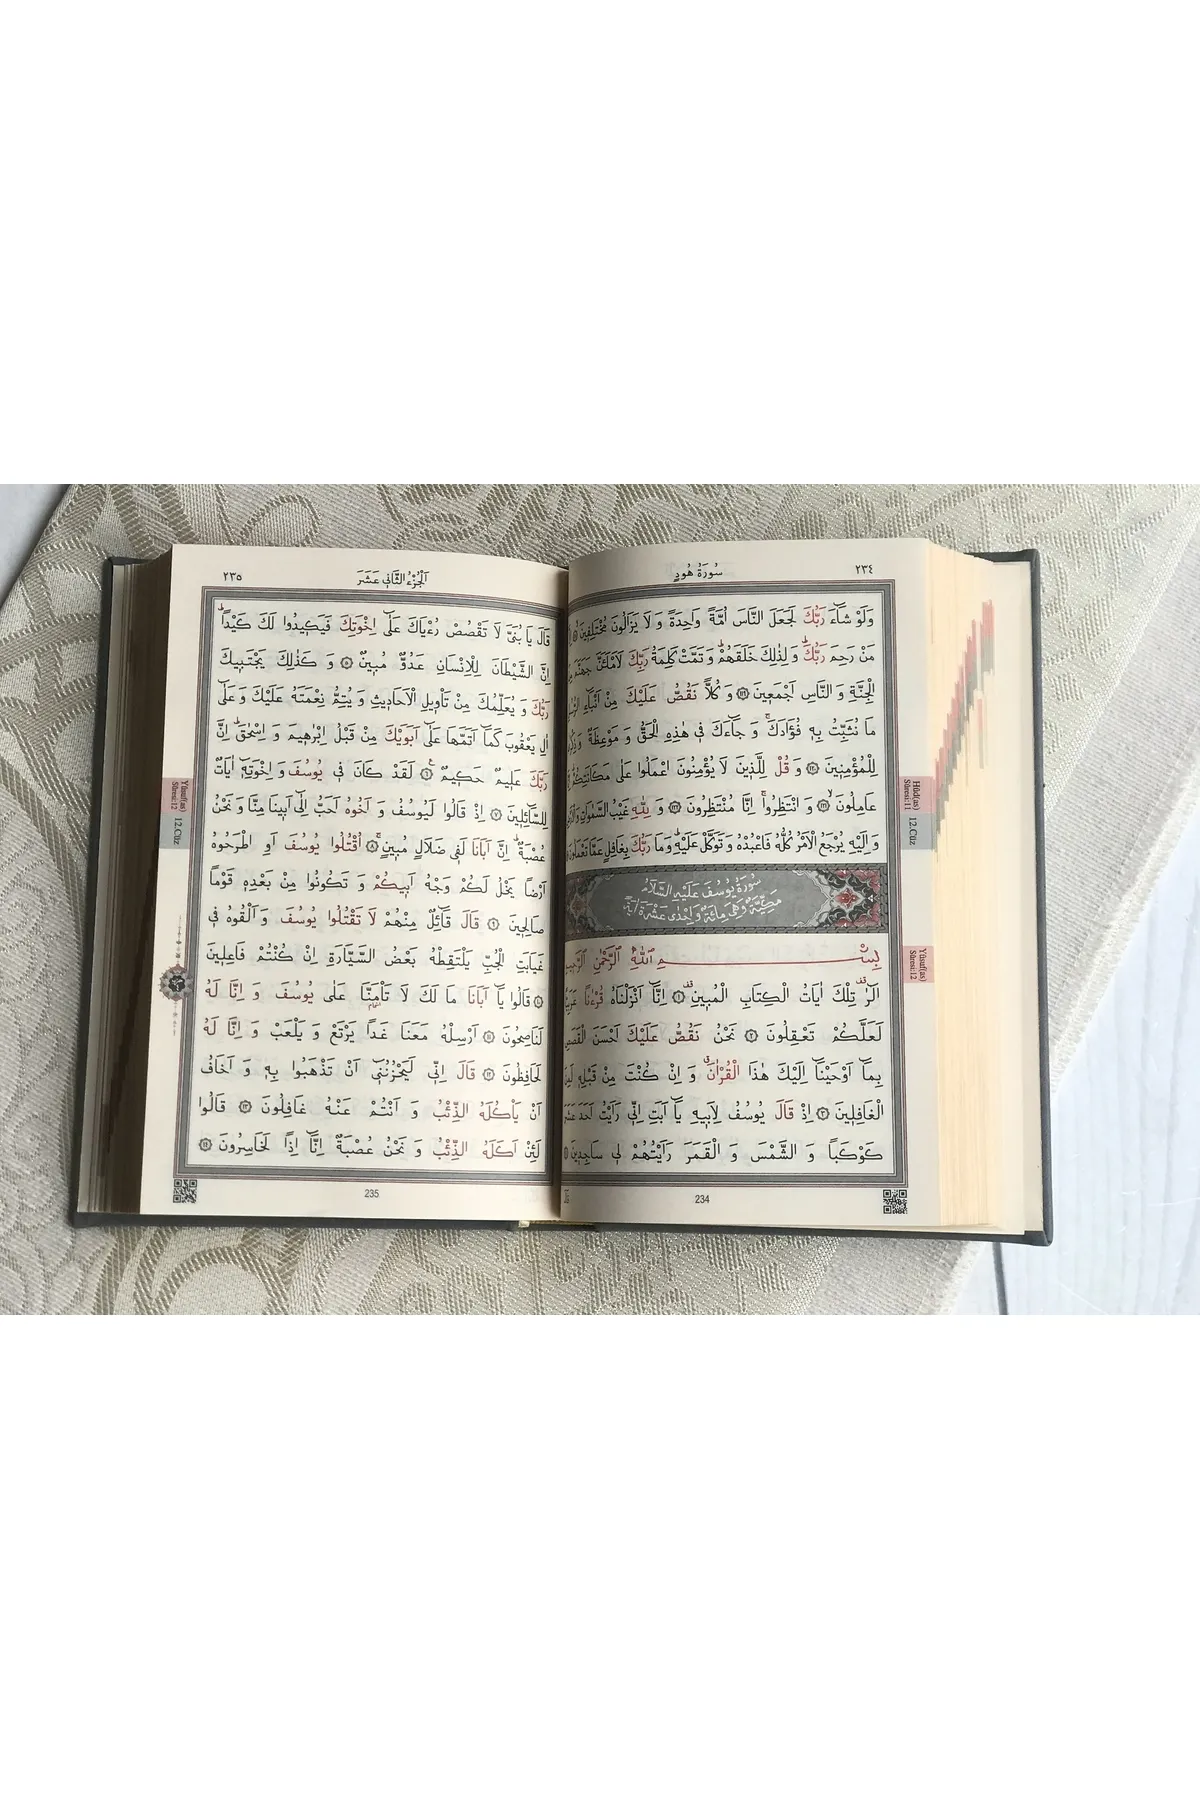 سُورَةُ هُودٍ ٢٣٤
وَلَوْ شَٓاءَ رَبُّكَ لَجَعَلَ النَّاسَ اُمَّةً وَاحِدَةً وَ لَا يَزَالُونَ مُخْتَلِفٖينَ
مَنْ رَحِمَ رَبُّكَ وَ لِذٰلِكَ خَلَقَهُمْ وَ تَمَّتْ كَلِمَةُ رَبِّكَ لَاَمْلَئَنَّ جَهَنَّمَ
الْجِنَّةِ وَ النَّاسِ اَجْمَعٖينَ ﴿١١٩﴾ وَ كُلًّا نَقُصُّ عَلَيْكَ مِنْ اَنْبَٓاءِ
مَا نُثَبِّتُ بِهٖ فُؤٰادَكَ وَ جَٓاءَكَ فٖى هٰذِهِ الْحَقُّ وَ مَوْعِظَةٌ
لِلْمُؤْمِنٖينَ ﴿١٢٠﴾ وَ قُلْ لِلَّذٖينَ لَا يُؤْمِنُونَ اعْمَلُوا عَلٰى مَكَانَتِكُمْ
عَامِلُونَ ﴿١٢١﴾ وَ انْتَظِرُوا اِنَّا مُنْتَظِرُونَ ﴿١٢٢﴾ وَ لِلّٰهِ غَيْبُ السَّمٰوَاتِ
وَ اِلَيْهِ يُرْجَعُ الْاَمْرُ كُلُّهُ فَاعْبُدْهُ وَ تَوَكَّلْ عَلَيْهِ وَمَا رَبُّكَ بِغَافِلٍ عَمَّا تَعْمَلُونَ
سُورَةُ يُوسُفَ عَلَيْهِ السَّلَامُ
مَكِّيَّةٌ وَهِىَ مِائَةٌ وَاِحْدٰى عَشْرَةَ اٰيَةً
بِسْمِ اللّٰهِ الرَّحْمٰنِ الرَّحٖيمِ
الٓرٰ تِلْكَ اٰيَاتُ الْكِتَابِ الْمُبٖينِ ﴿١﴾ اِنَّٓا اَنْزَلْنَاهُ قُرْءٰنًا عَرَبِيًّا
لَعَلَّكُمْ تَعْقِلُونَ ﴿٢﴾ نَحْنُ نَقُصُّ عَلَيْكَ اَحْسَنَ الْقَصَصِ
بِمَٓا اَوْحَيْنَٓا اِلَيْكَ هٰذَا الْقُرْاٰنَ وَ اِنْ كُنْتَ مِنْ قَبْلِهٖ لَمِنَ
الْغَافِلٖينَ ﴿٣﴾ اِذْ قَالَ يُوسُفُ لِاَبٖيهِ يَٓا اَبَتِ اِنّٖى رَاَيْتُ اَحَدَ عَشَرَ
كَوْكَبًا وَ الشَّمْسَ وَ الْقَمَرَ رَاَيْتُهُمْ لٖى سَاجِدٖينَ ﴿٤﴾
234
Hûd(as)
Sûresi:11
12.Cüz
Yûsuf(as)
Sûresi:12
اَلْجُزْءُ الثَّانٖى عَشَرَ ٢٣٥
قَالَ يَا بُنَىَّ لَا تَقْصُصْ رُءْيَاكَ عَلٰٓى اِخْوَتِكَ فَيَكٖيدُوا لَكَ كَيْدًا
اِنَّ الشَّيْطَانَ لِلْاِنْسَانِ عَدُوٌّ مُبٖينٌ ﴿٥﴾ وَ كَذٰلِكَ يَجْتَبٖيكَ
رَبُّكَ وَ يُعَلِّمُكَ مِنْ تَاْوٖيلِ الْاَحَادٖيثِ وَ يُتِمُّ نِعْمَتَهُ عَلَيْكَ وَ عَلٰٓى
اٰلِ يَعْقُوبَ كَمَٓا اَتَمَّهَا عَلٰٓى اَبَوَيْكَ مِنْ قَبْلُ اِبْرٰهٖيمَ وَ اِسْحٰقَ اِنَّ
رَبَّكَ عَلٖيمٌ حَكٖيمٌ ﴿٦﴾ لَقَدْ كَانَ فٖى يُوسُفَ وَ اِخْوَتِهٖٓ اٰيَاتٌ
لِلسَّٓائِلٖينَ ﴿٧﴾ اِذْ قَالُوا لَيُوسُفُ وَ اَخُوهُ اَحَبُّ اِلٰٓى اَبٖينَا مِنَّا وَ نَحْنُ
عُصْبَةٌ اِنَّ اَبَانَا لَفٖى ضَلَالٍ مُبٖينٍ ﴿٨﴾ اُقْتُلُوا يُوسُفَ اَوِ اطْرَحُوهُ
اَرْضًا يَخْلُ لَكُمْ وَجْهُ اَبٖيكُمْ وَ تَكُونُوا مِنْ بَعْدِهٖ قَوْمًا
صَالِحٖينَ ﴿٩﴾ قَالَ قَٓائِلٌ مِنْهُمْ لَا تَقْتُلُوا يُوسُفَ وَ اَلْقُوهُ فٖى
غَيَابَتِ الْجُبِّ يَلْتَقِطْهُ بَعْضُ السَّيَّارَةِ اِنْ كُنْتُمْ فَاعِلٖينَ
﴿١٠﴾ قَالُوا يَٓا اَبَانَا مَا لَكَ لَا تَاْمَنَّا عَلٰى يُوسُفَ وَ اِنَّا لَهُ
لَنَاصِحُونَ ﴿١١﴾ اَرْسِلْهُ مَعَنَا غَدًا يَرْتَعْ وَ يَلْعَبْ وَ اِنَّا لَهُ
لَحَافِظُونَ ﴿١٢﴾ قَالَ اِنّٖى لَيَحْزُنُنٖٓى اَنْ تَذْهَبُوا بِهٖ وَ اَخَافُ
اَنْ يَاْكُلَهُ الذِّئْبُ وَ اَنْتُمْ عَنْهُ غَافِلُونَ ﴿١٣﴾ قَالُوا
لَئِنْ اَكَلَهُ الذِّئْبُ وَ نَحْنُ عُصْبَةٌ اِنَّٓا اِذًا لَخَاسِرُونَ ﴿١٤﴾
235
Yûsuf(as)
Sûresi:12
12.Cüz